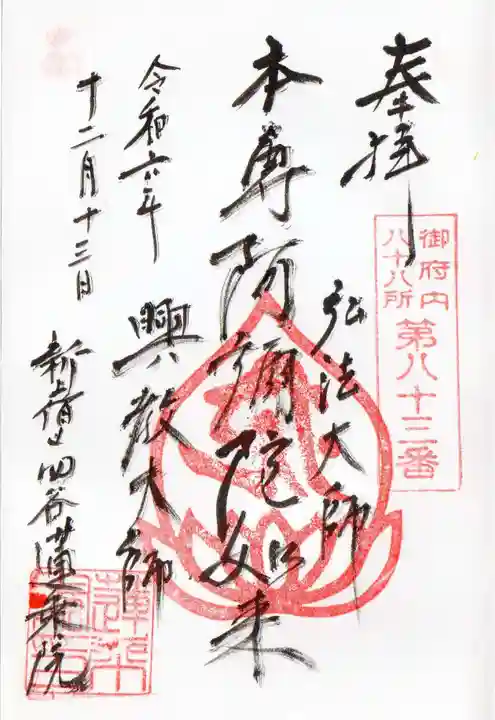 奉拝
御府内
八十八所
第八十三番
弘法大師
本尊阿彌陀如来
興教大師
令和六年
十二月十三日
新宿区四谷蓮乗院